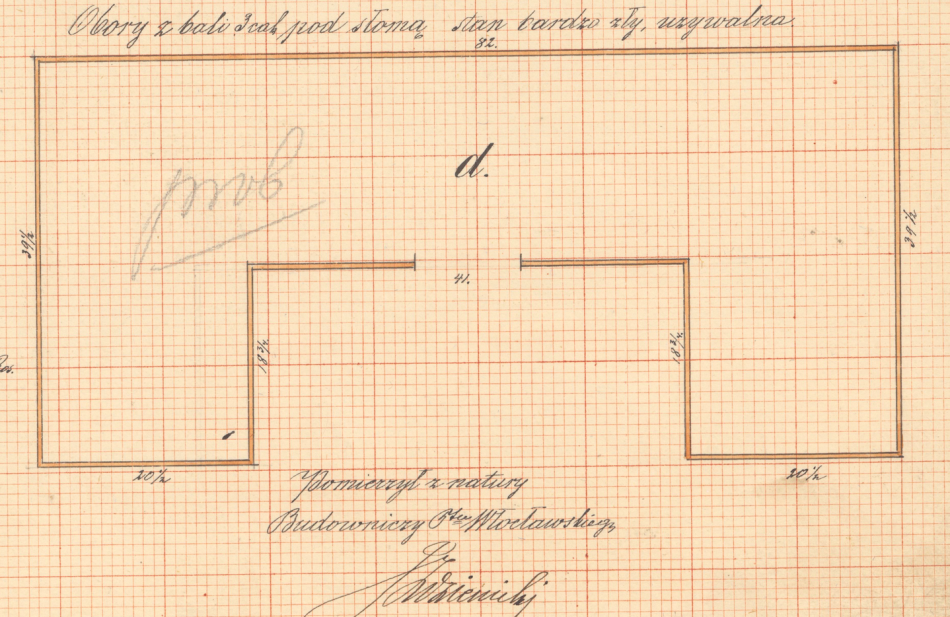 Obory z bali 3 cal, pod słomą stan bardzo zły, używalna
82.
d.
39½
39½
41.
18¾
18¾
20½
20½
Pomierzył z natury
Budowniczy Włocławskiego